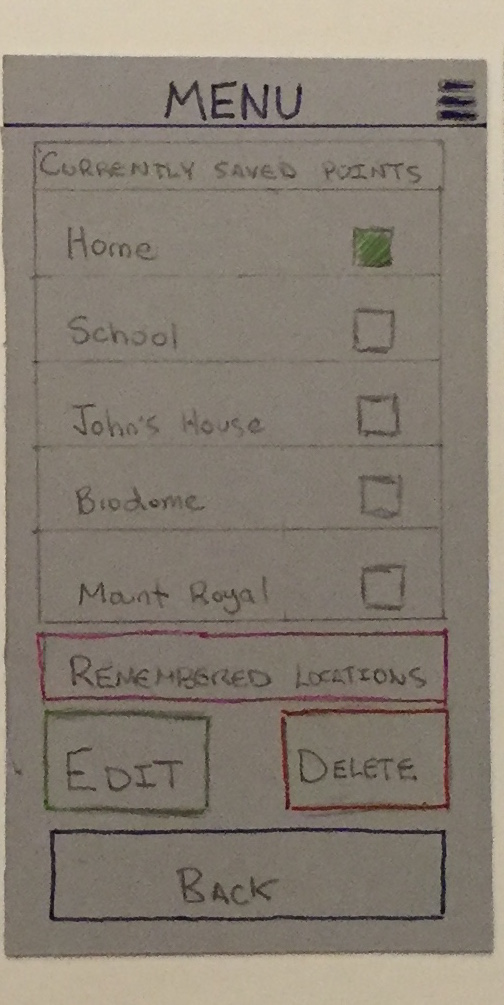 MENU
CURRENTLY SAVED POINTS
Home
School
John's House
Biodome
Mount Royal
REMEMBERED LOCATIONS
EDIT
DELETE
BACK